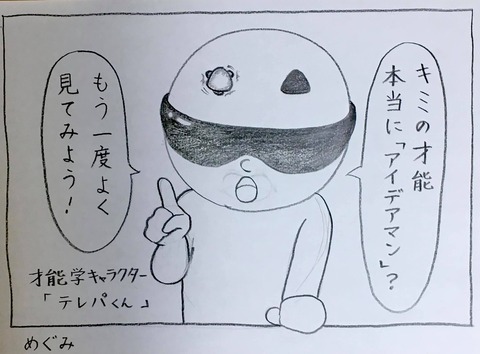 キミの才能
本当に「アイデアマン」?
もう一度よく
見てみよう!
才能学キャラクター
「テレパくん」
めぐみ